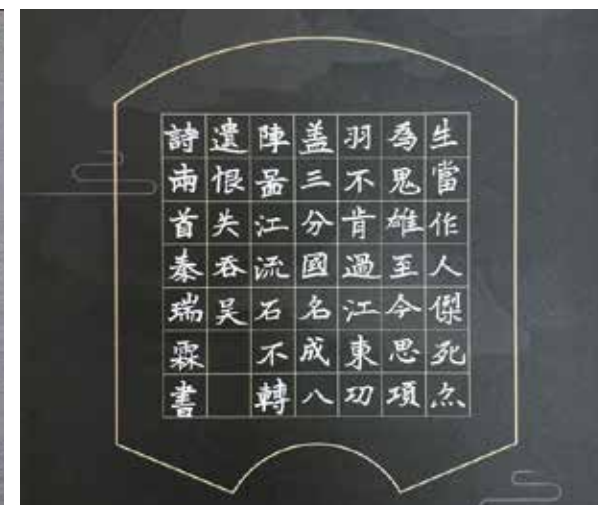 生當作人傑死亦
為鬼雄至今思項
羽不肯過江東功
盖三分國名成八
陣啚江流石不轉
遺恨失吞吴
詩兩首秦瑞霖書